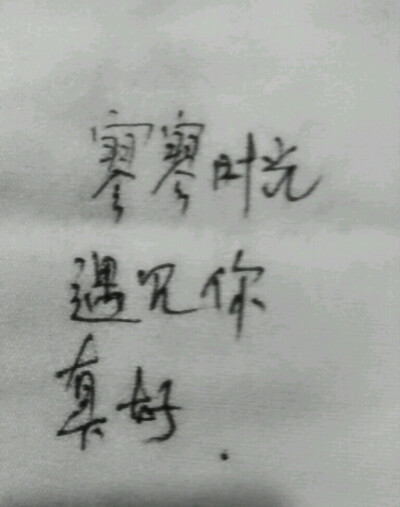 寥寥时光
遇见你
真好.